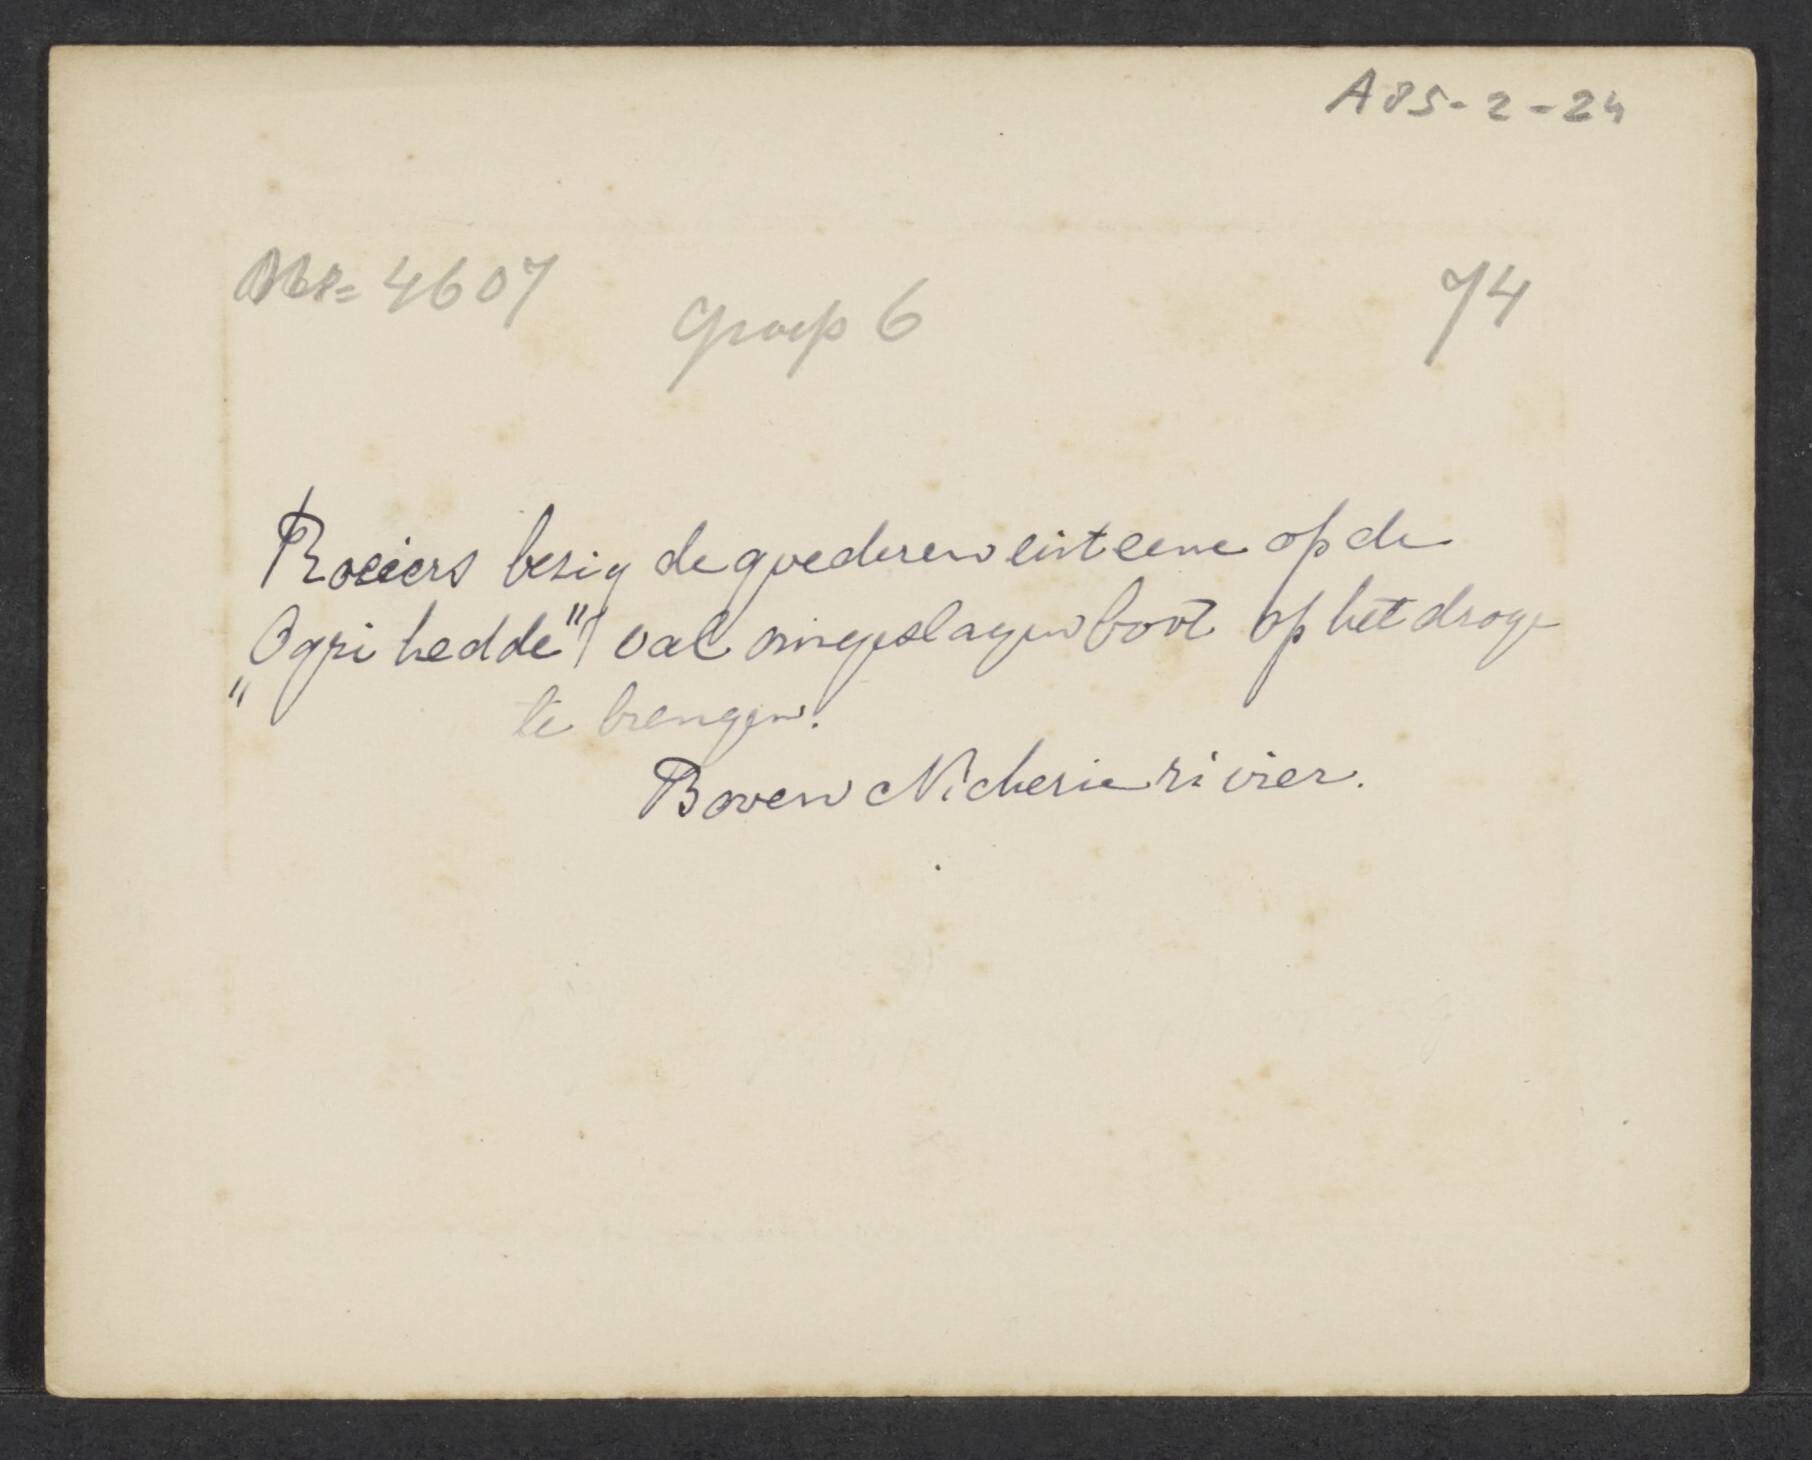 A85-2-24
4607
groep 6
74
Roeiers bezig de goederen uit eene op de
„Ogri hedde" val omgeslagen boot op het droge
te brengen.
Boven Nickerie rivier.